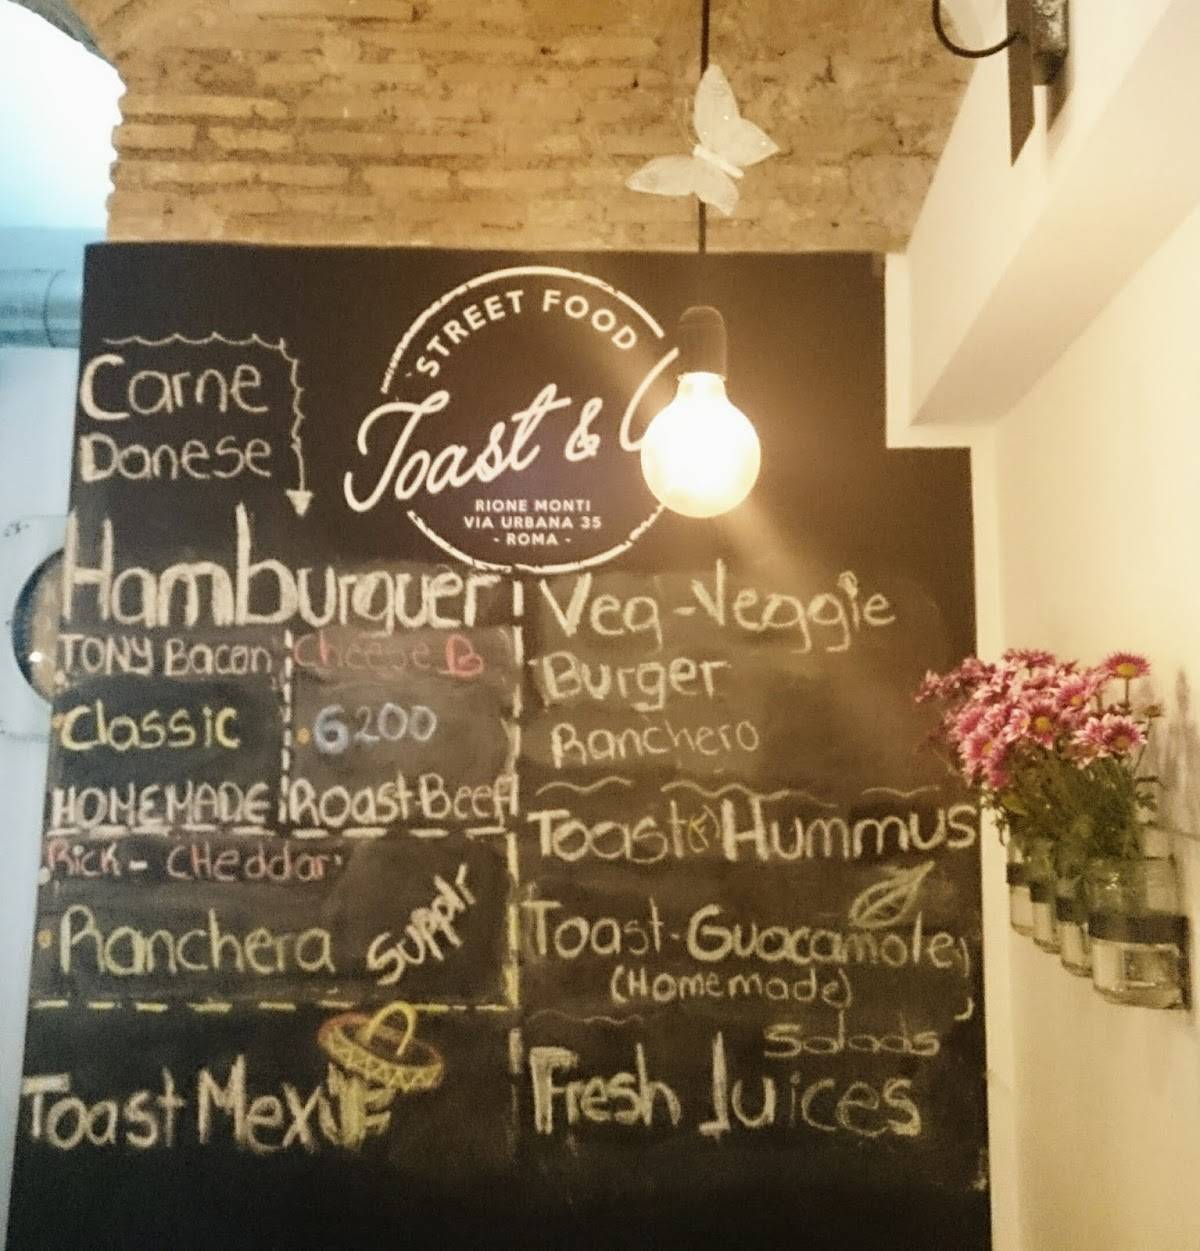 STREET FOOD
Toast &
RIONE MONTI
VIA URBANA 35
- ROMA -
Carne
Danese
Hamburguer
TONY Bacon
Cheese B
Classic
6200
HOMEMADE
Roast-Beef
Rick - CHeddar
Ranchera
Supplì
Toast Mex
Veg-Veggie
Burger
Ranchero
Toast Hummus
Toast-Guacamole
(Homemade)
Salads
Fresh Juices